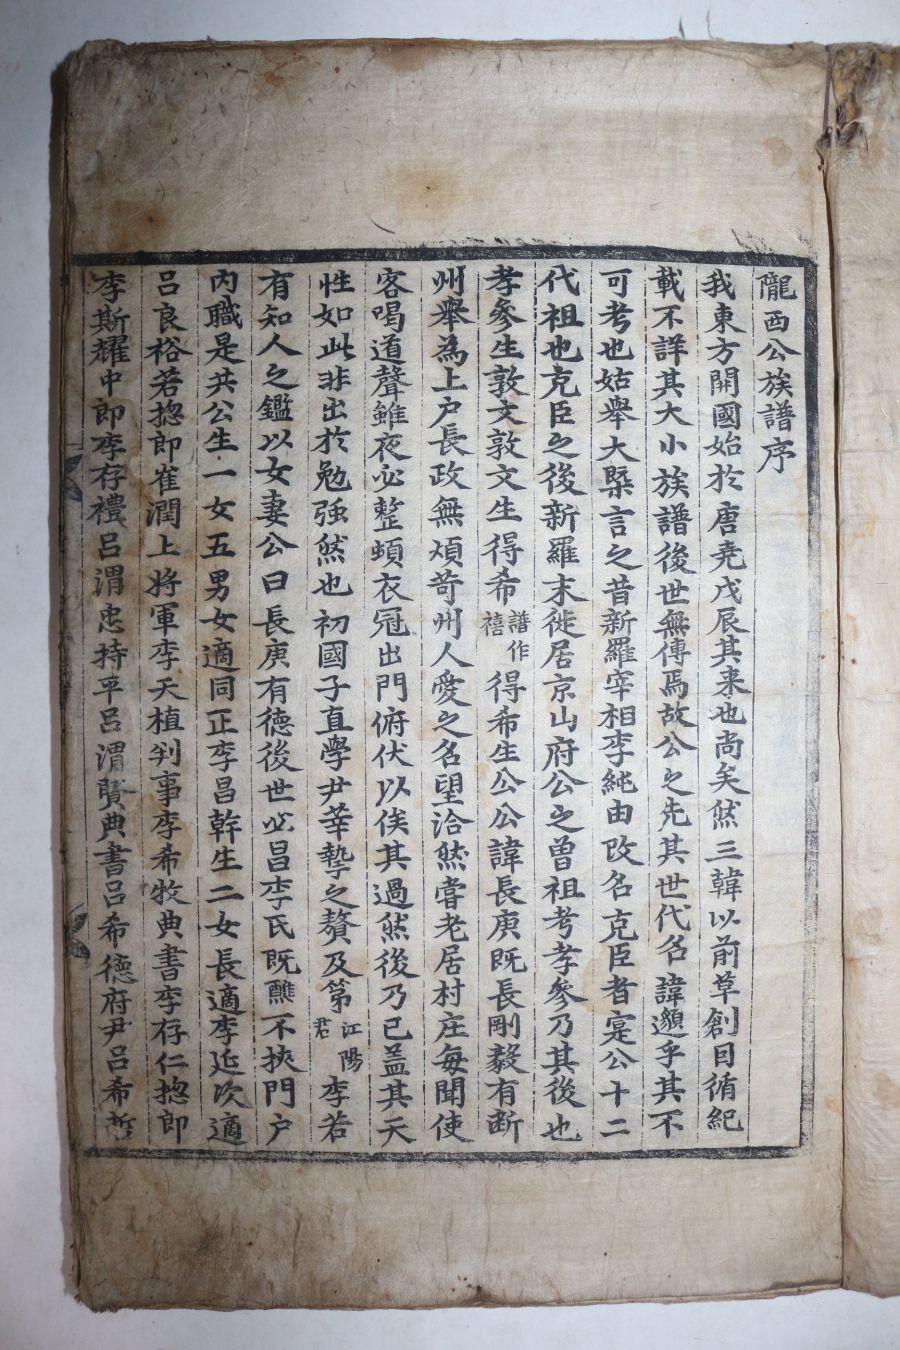 隴西公族譜序
我東方開國始於唐堯戊辰其来也尚矣然三韓以前草創因循紀
載不詳其大小族譜後世無傳焉故公之先其世代名諱邈乎其不
可考也姑舉大槩言之昔新羅宰相李純由改名克臣者寔公十二
代祖也克臣之後新羅末徙居京山府公之曾祖考孝參乃其後也
孝參生敦文敦文生得希譜作禧得希生公公諱長庚既長剛毅有断
州舉為上户長政無煩苛州人愛之名望洽然甞老居村庄每聞使
客喝道聲雖夜必整頓衣冠出門俯伏以俟其過然後乃已盖其天
性如此非出於勉強然也初國子直學尹莘摯之贅及第江陽君李若
有知人之鑑以女妻公曰長庚有德後世必昌李氏既醮不挾門户
内職是共公生一女五男女適同正李昌幹生二女長適李延次適
吕良裕若揔郎崔潤上將軍李天植判事李希牧典書李存仁揔郎
李斯耀中郎李存禮吕渭忠持平吕渭賢典書吕希德府尹吕希哲